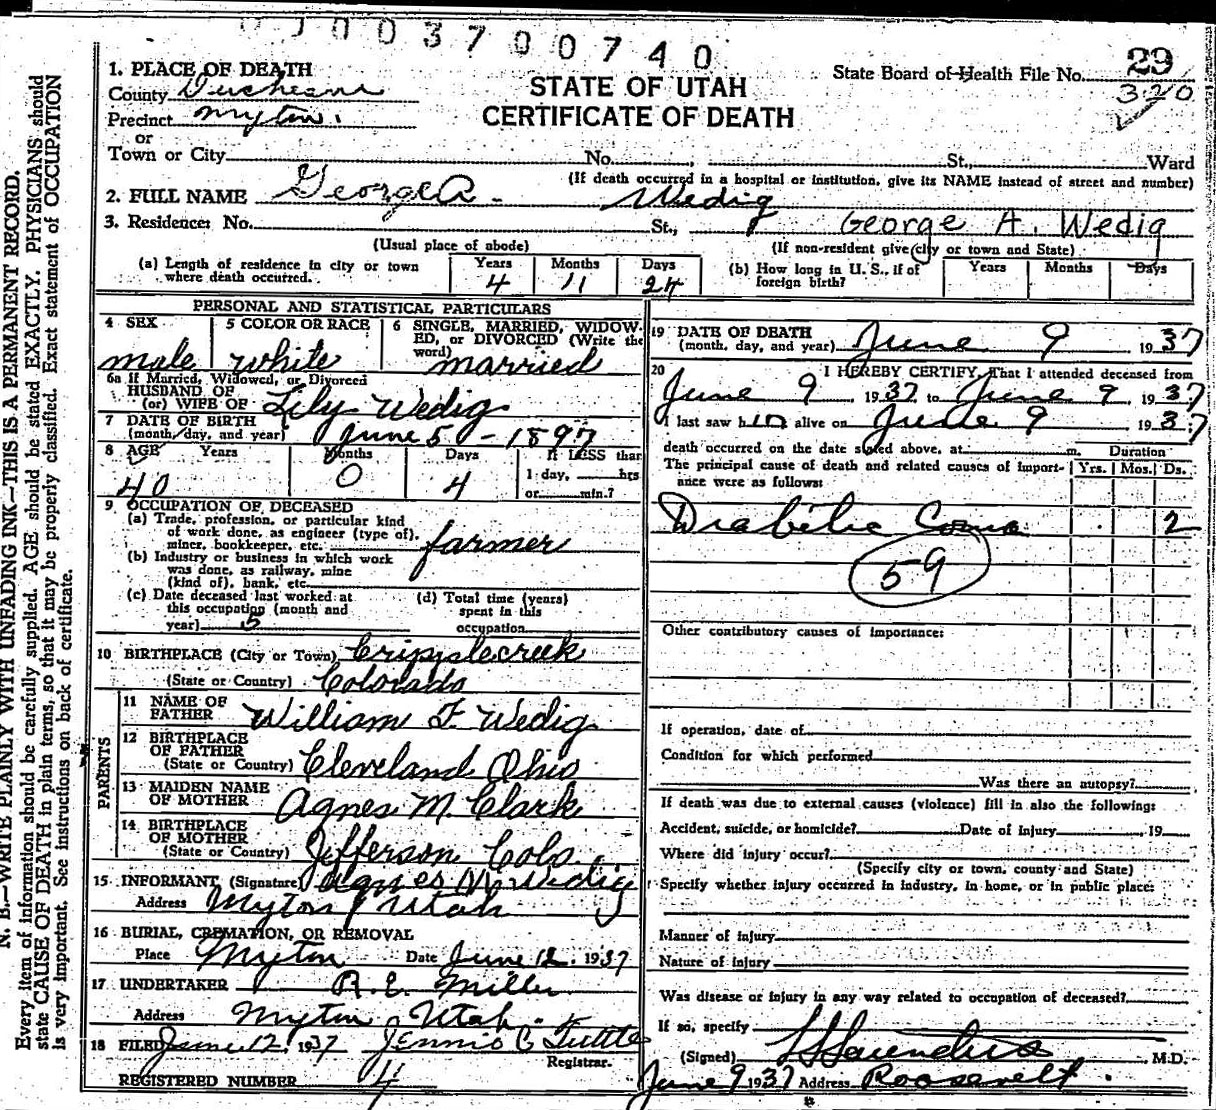 0 3 7 0 0 7 4 0
1. PLACE OF DEATH
County Duchesne
Precinct Myton.
or
Town or City No. St., Ward
STATE OF UTAH
CERTIFICATE OF DEATH
State Board of Health File No. 29
320
(If death occurred in a hospital or institution, give its NAME instead of street and number)
2. FULL NAME George A. Wedig
3. Residence: No. St., George A. Wedig
(Usual place of abode) (If non-resident give city or town and State)
(a) Length of residence in city or town where death occurred. Years 4 Months 11 Days 24
(b) How long in U. S., if of foreign birth? Years Months Days
PERSONAL AND STATISTICAL PARTICULARS
4 SEX male
5 COLOR OR RACE white
6 SINGLE, MARRIED, WIDOWED, or DIVORCED (Write the word) married
6a If Married, Widowed, or Divorced
HUSBAND OF
(or) WIFE OF Lily Wedig
7 DATE OF BIRTH
(month, day, and year) June 5 - 1897
8 AGE Years 40 Months 0 Days 4 If LESS than 1 day, hrs or min.?
9 OCCUPATION OF DECEASED
(a) Trade, profession, or particular kind
of work done, as engineer (type of),
miner, bookkeeper, etc. farmer
(b) Industry or business in which work
was done, as railway, mine
(kind of), bank, etc.
(c) Date deceased last worked at
this occupation (month and
year) 5
(d) Total time (years)
spent in this
occupation
10 BIRTHPLACE (City or Town) Cripplecreek
(State or Country) Colorado
PARENTS
11 NAME OF
FATHER William F Wedig
12 BIRTHPLACE
OF FATHER
(State or Country) Cleveland Ohio
13 MAIDEN NAME
OF MOTHER Agnes M. Clark
14 BIRTHPLACE
OF MOTHER
(State or Country) Jefferson Colo.
15 INFORMANT (Signature) Agnes M Wedig
Address Myton Utah
16 BURIAL, CREMATION, OR REMOVAL
Place Myton Date June 12, 1937
17 UNDERTAKER R. E. Miller
Address Myton Utah.
18 FILED June 12, 1937 Jennie C Tuttle
Registrar.
REGISTERED NUMBER 4
19 DATE OF DEATH
(month, day, and year) June 9 1937
20 I HEREBY CERTIFY, That I attended deceased from
June 9, 1937 to June 9, 1937
I last saw him alive on June 9 1937
death occurred on the date stated above, at m. Duration
The principal cause of death and related causes of importance were as follows: Yrs. Mos. Ds.
Diabetic Coma 2
59
Other contributory causes of importance:
If operation, date of
Condition for which performed
Was there an autopsy?
If death was due to external causes (violence) fill in also the following:
Accident, suicide, or homicide? Date of injury , 19
Where did injury occur?
(Specify city or town, county and State)
Specify whether injury occurred in industry, in home, or in public place:
Manner of injury
Nature of injury
Was disease or injury in any way related to occupation of deceased?
If so, specify
(Signed) Saunders, M.D.
June 9 1937 Address Roosevelt.
N. B.—WRITE PLAINLY WITH UNFADING INK—THIS IS A PERMANENT RECORD.
Every item of information should be carefully supplied. AGE should be stated EXACTLY. PHYSICIANS should
state CAUSE OF DEATH in plain terms, so that it may be properly classified. Exact statement of OCCUPATION
is very important. See instructions on back of certificate.